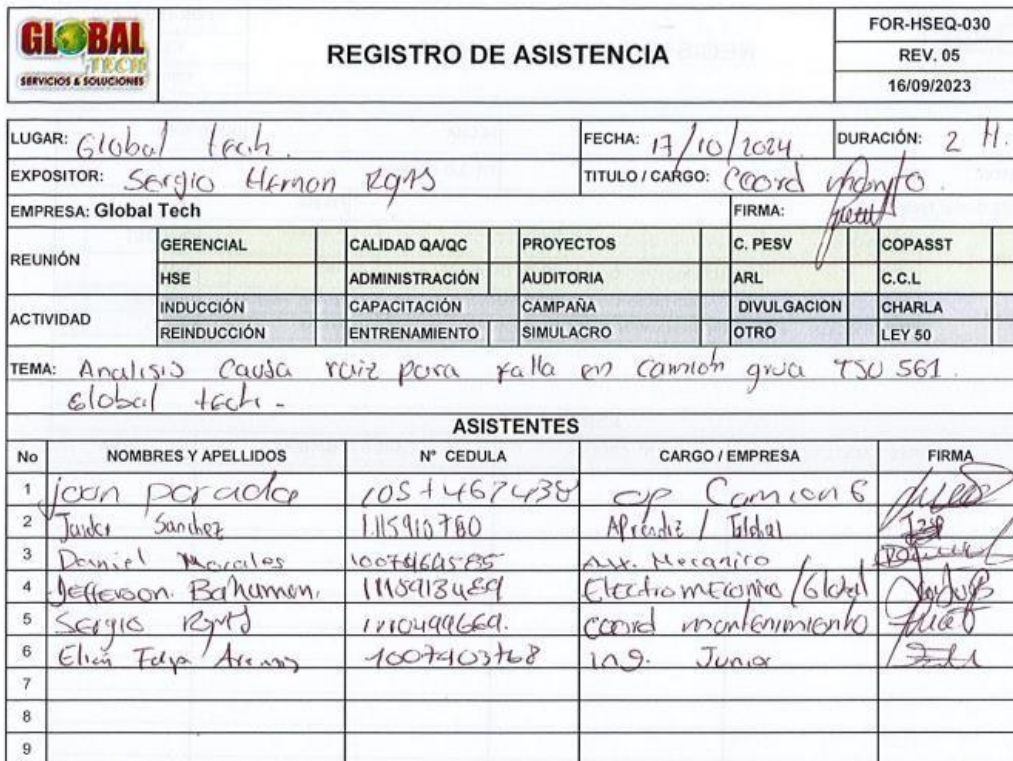 GLOBAL
TECH
SERVICIOS & SOLUCIONES
REGISTRO DE ASISTENCIA
FOR-HSEQ-030
REV. 05
16/09/2023
LUGAR: Global tech. FECHA: 17/10/2024 DURACIÓN: 2 H.
EXPOSITOR: Sergio Hernan TITULO / CARGO: Coord
EMPRESA: Global Tech FIRMA:
REUNIÓN
GERENCIAL CALIDAD QA/QC PROYECTOS C. PESV COPASST
HSE ADMINISTRACIÓN AUDITORIA ARL C.C.L
ACTIVIDAD
INDUCCIÓN CAPACITACIÓN CAMPAÑA DIVULGACION CHARLA
REINDUCCIÓN ENTRENAMIENTO SIMULACRO OTRO LEY 50
TEMA: Analisis Causa raiz para falla en camión grua TSU 561.
Global tech -
ASISTENTES
No NOMBRES Y APELLIDOS N° CEDULA CARGO / EMPRESA FIRMA
1 joan parada op Camion 6
2 Sanchez 1115910780 Aprendiz / Global
3 Daniel Morales Aux. Mecanico
4 Jefferson. Bahamon. 1115913489 Electromecanico / Global
5 Sergio coord mantenimiento
6 1007403768 ing. Junior
7
8
9